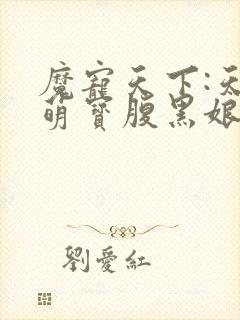 魔寵天下:天
萌寶腹黑娘
劉愛紅